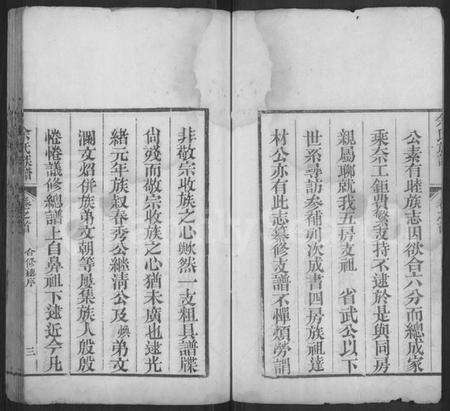 公素有睦族志因欲合六分而總成家
乘奈工鉅費繁支持不逮於是與同房
親屬聊就我五房支祖　省武公以下
世系尋訪參補刋次成書四房族祖達
材公亦有此志纂修支譜不憚煩勞誚
非敬宗收族之心歟然一支粗具譜牒
尙殘而敬宗收族之心猶未廣也逮光
緖元年族叔春秀公繼清公及 弟文
瀾文炤併族弟文朝等屢集族人殷殷
惓惓議修總譜上自鼻祖下逮近今凡
氏族譜
卷之首
合修總序
三